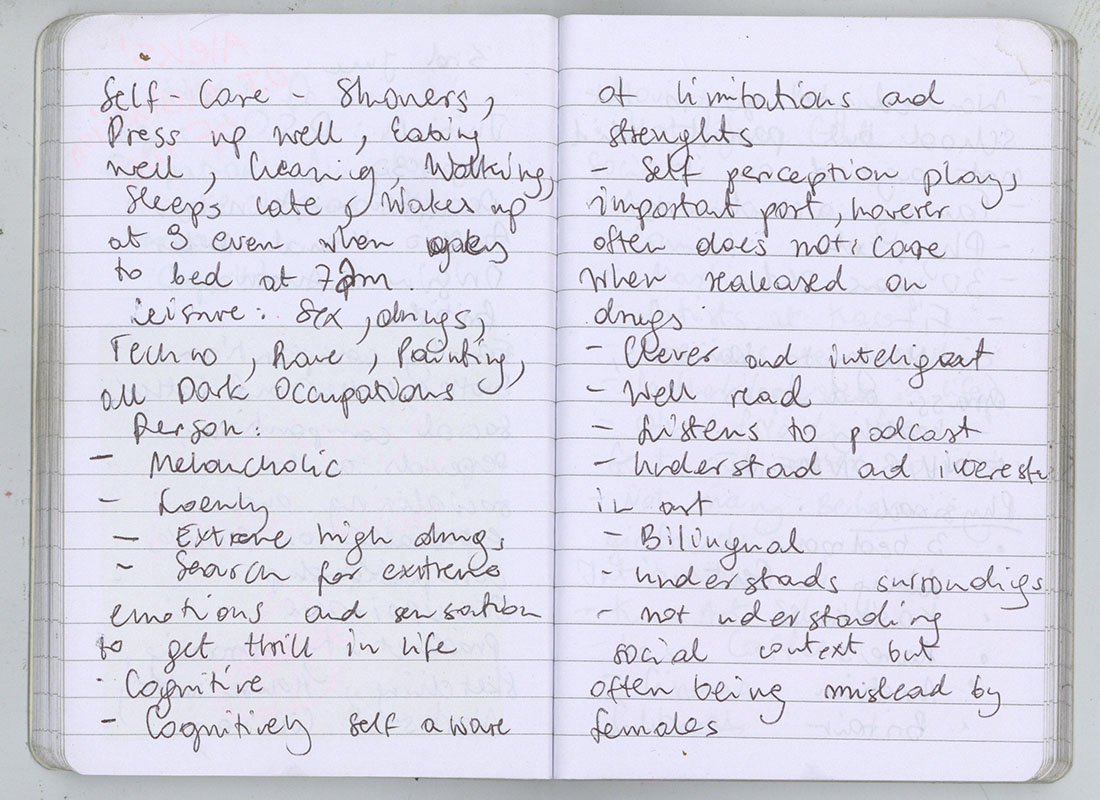 Self Care - Showers,
Dress up well, Eating
well, Cleaning, Walking,
Sleeps late, Wakes up
at 9 even when
to bed at 7pm.
Leisure: Sex, drugs,
Techno, Rave, Painting,
all Dark Occupations
Person:
- Meloncholic
- Loenly
- Extreme high drugs
- Search for exstreme
emotions and sensation
to get thrill in life
· Cognitive
- Cognitively self aware
of limitations and
strenghts
- Self perception plays
important part, hoverer
often does not care
when realeased on
drugs
- Clever and inteligeat
- Well read
- Listens to podcast
- Understad ad interests
in art
- Bilingual
- understads surrondigs
- not uderstading
social context but
often being mislead by
females